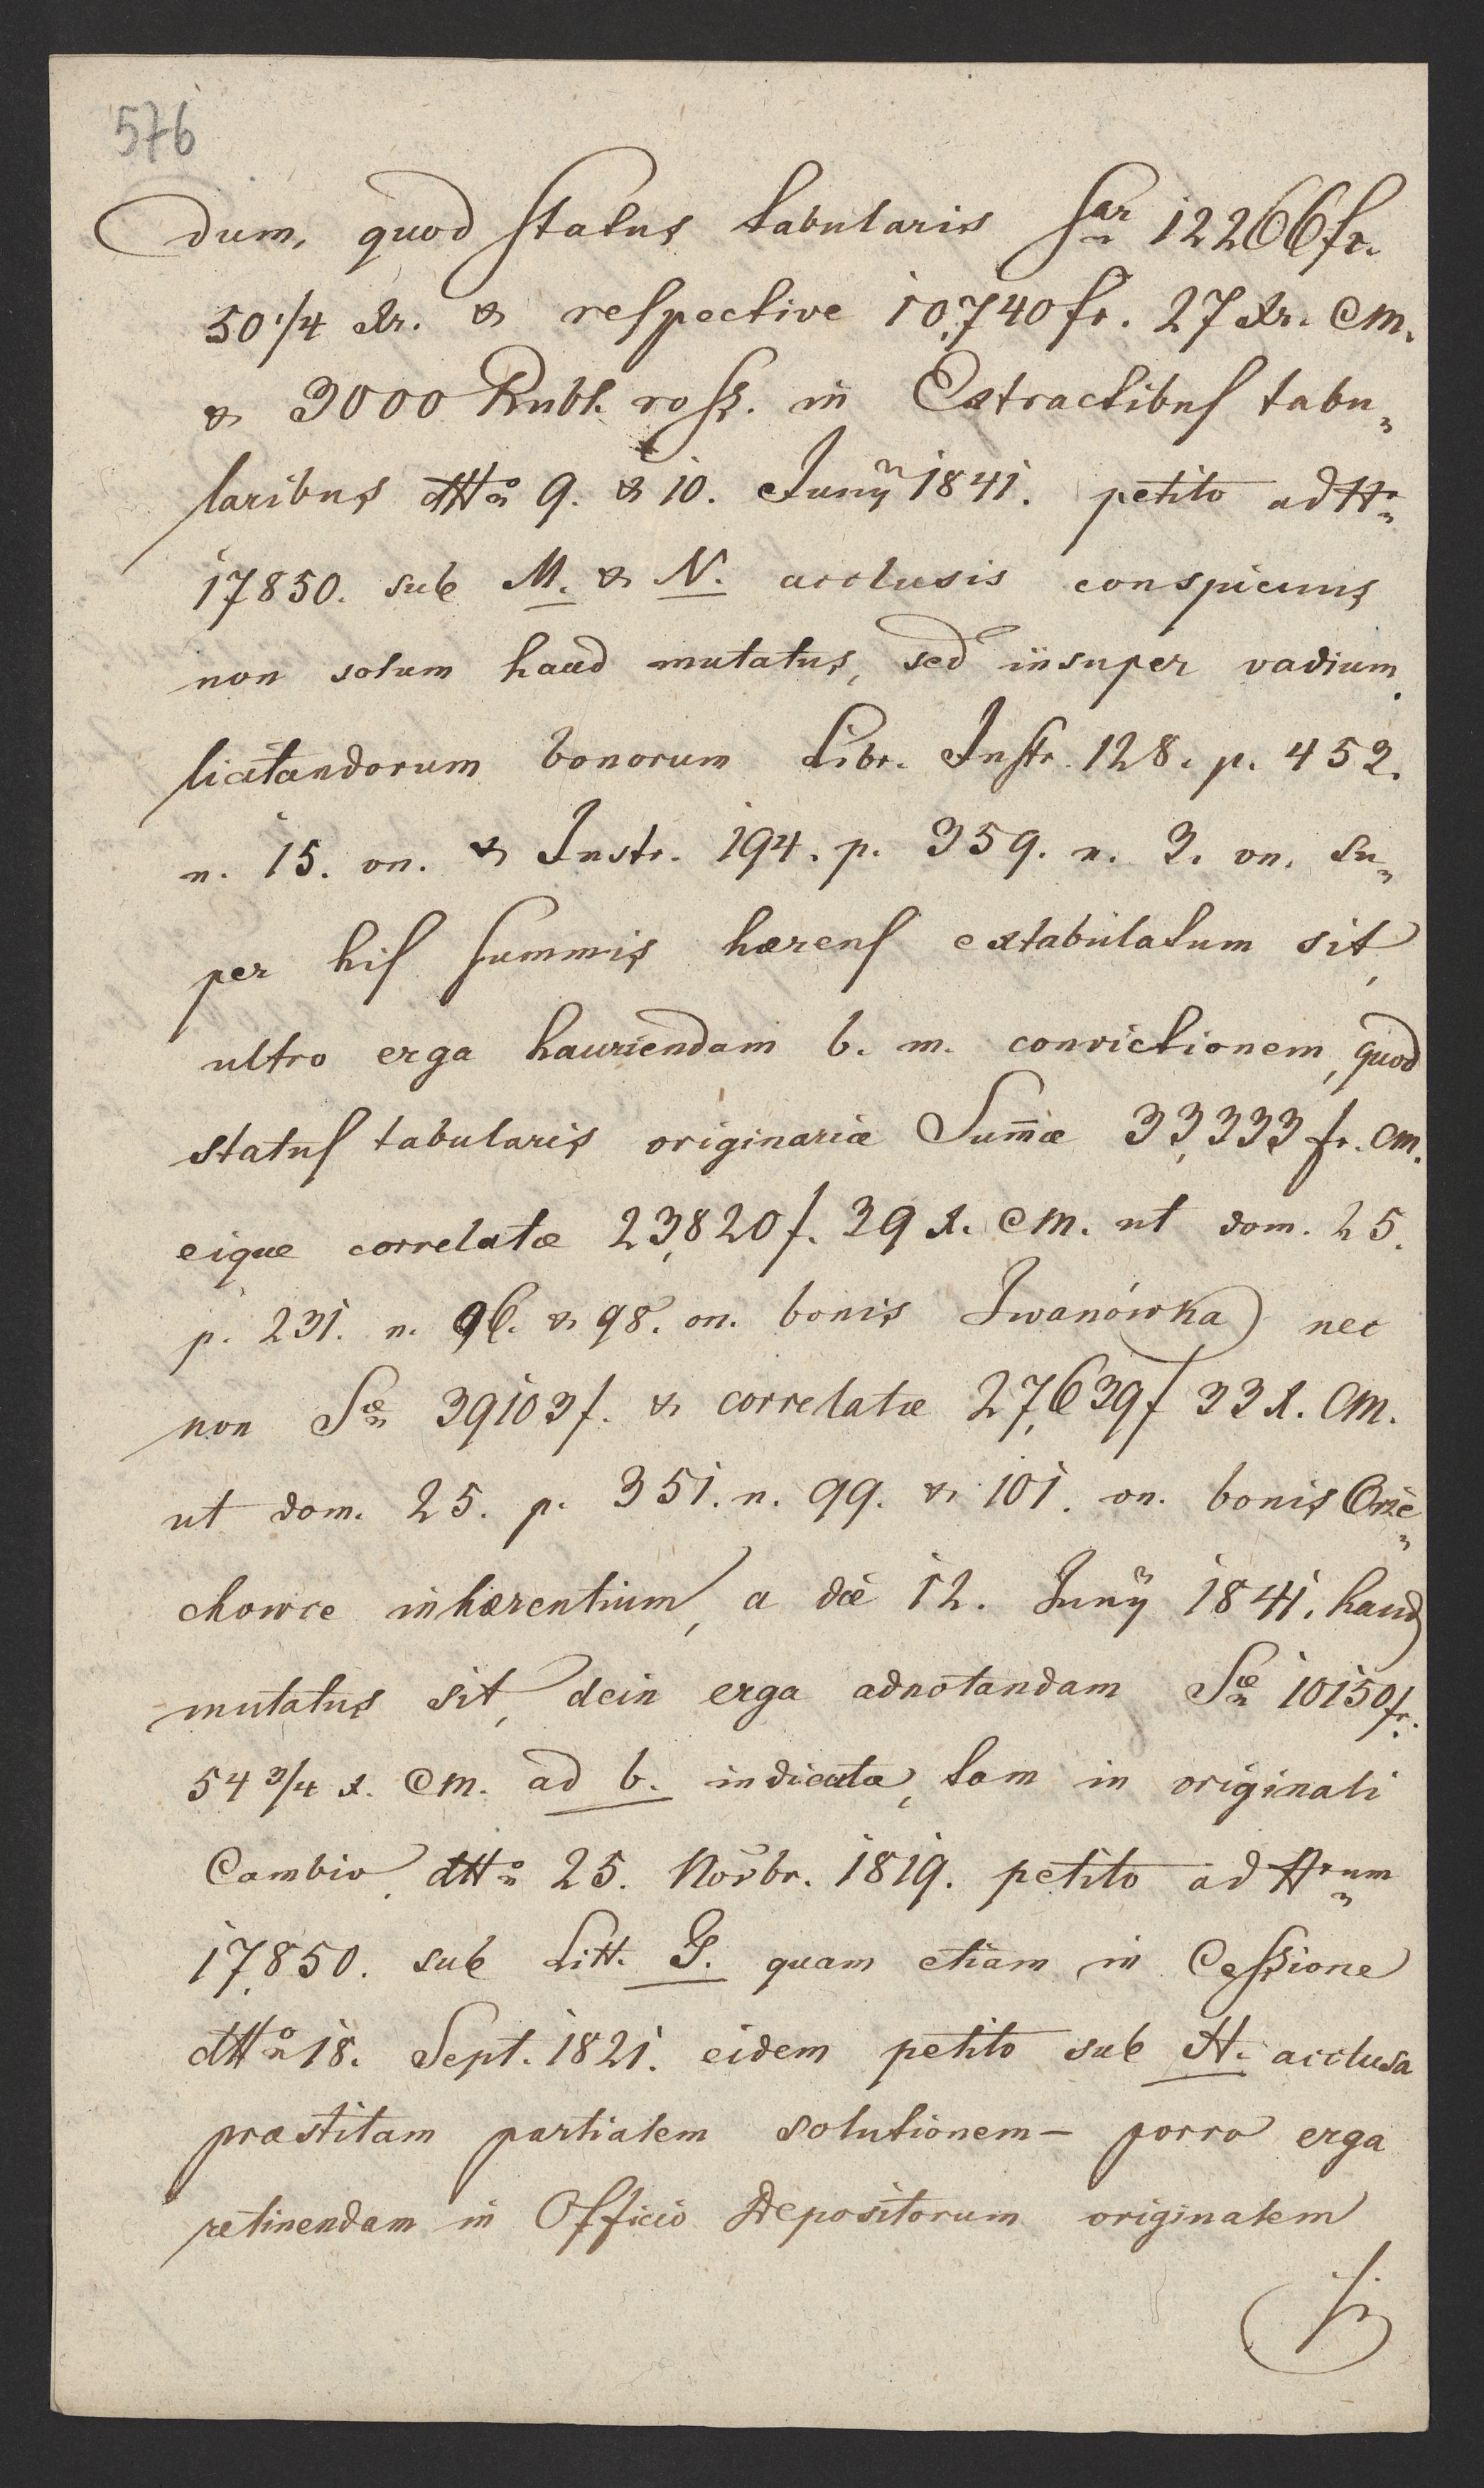 576
dum, quod status tabularis Sar 12266 fr.
50 1/4 xr. & respective 10,740 fr. 27 xr. CM.
& 3000 Rubl. ross. in Extractibus tabu=
laribus dtto 9. & 10. Junij 1841. petito ad Nr
17850. sub M. & N. acclusis conspicuus
non solum haud mutatus, sed insuper vadium
licitandorum bonorum Libr. Instr. 128. p. 452.
n. 15. on. & Instr. 194. p. 359. n. 3. on. su=
per his summis hærens extabulatum sit,
ultro erga hauriendam b. m. convictionem, quod
status tabularis originariæ Sum̄æ 33,333 fr. CM.
eique correlatæ 23,820 f. 39 x. CM. ut dom. 25.
p. 231. n. 96. & 98. on. bonis Iwanówka nec
non Sæ 39103 f. & correlatæ 27,639 f 33 x. CM.
ut dom. 25. p. 351. n. 99. & 101. on. bonis Orze=
chowce inhærentium, a die 12. Junij 1841. haud
mutatus sit, dein erga adnotandam Sæ 10150 fr.
54 3/4 x. CM. ad b. indicatæ, tam in originali
Cambio, dtto 25. Novbr. 1819. petito ad Nrum
17,850. sub Litt. G. quam etiam in Cessione
dtto 18. Sept. 1821. eidem petito sub H. acclusa
præstitam partialem solutionem – porro erga
retinendam in Officio Depositorum originalem